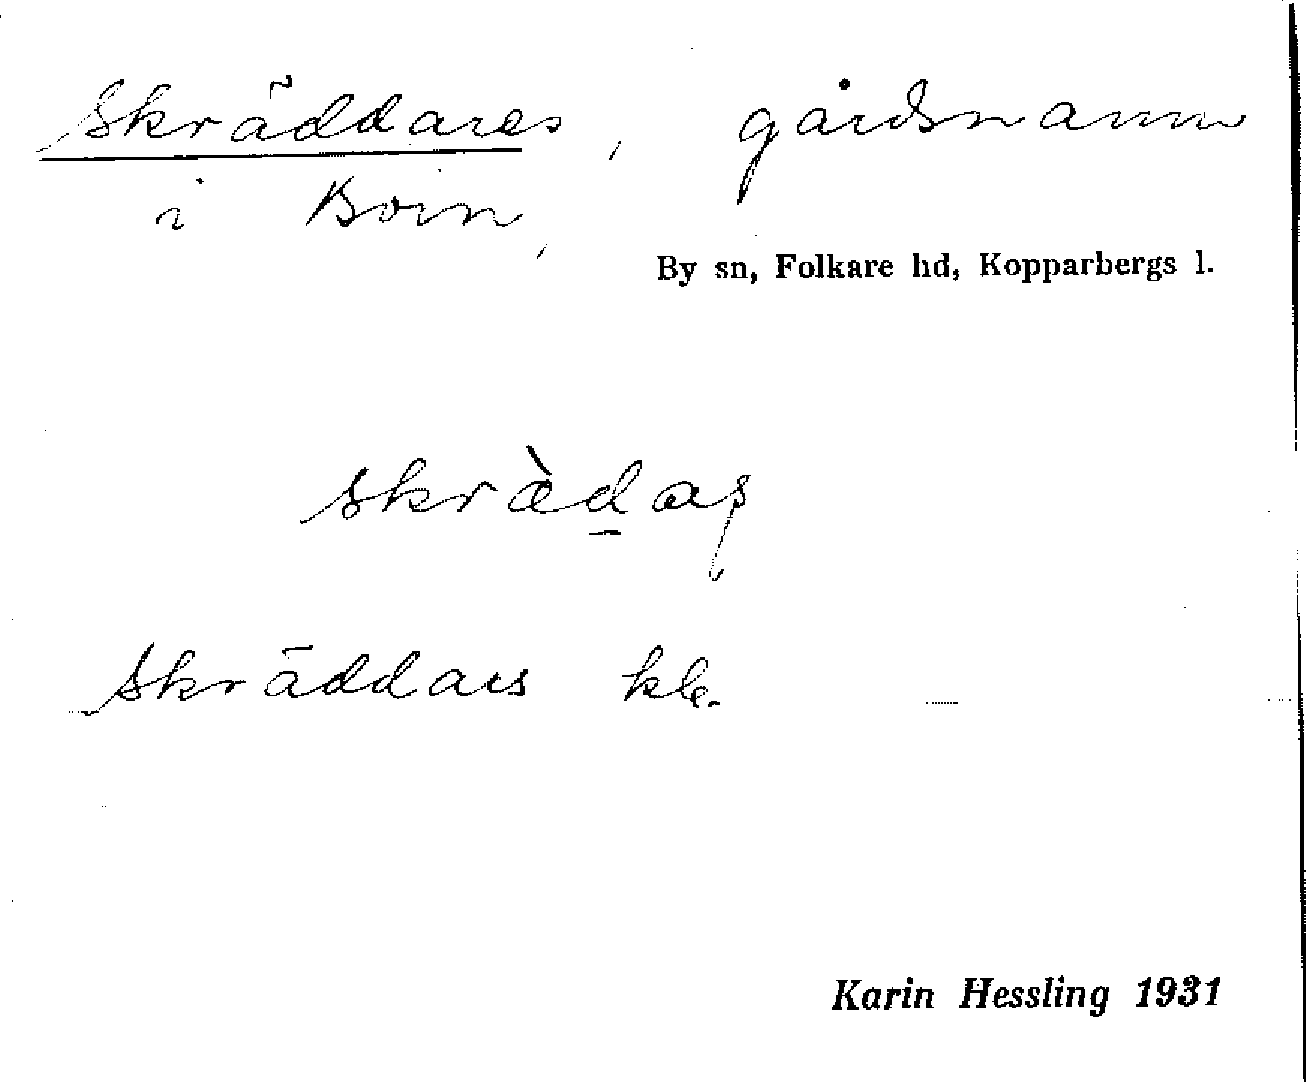 Skräddares, gårdsnamn
i Boin,
By sn, Folkare hd, Kopparbergs l.
skræ̀d̲aş
Skräddars kle.
Karin Hessling 1931